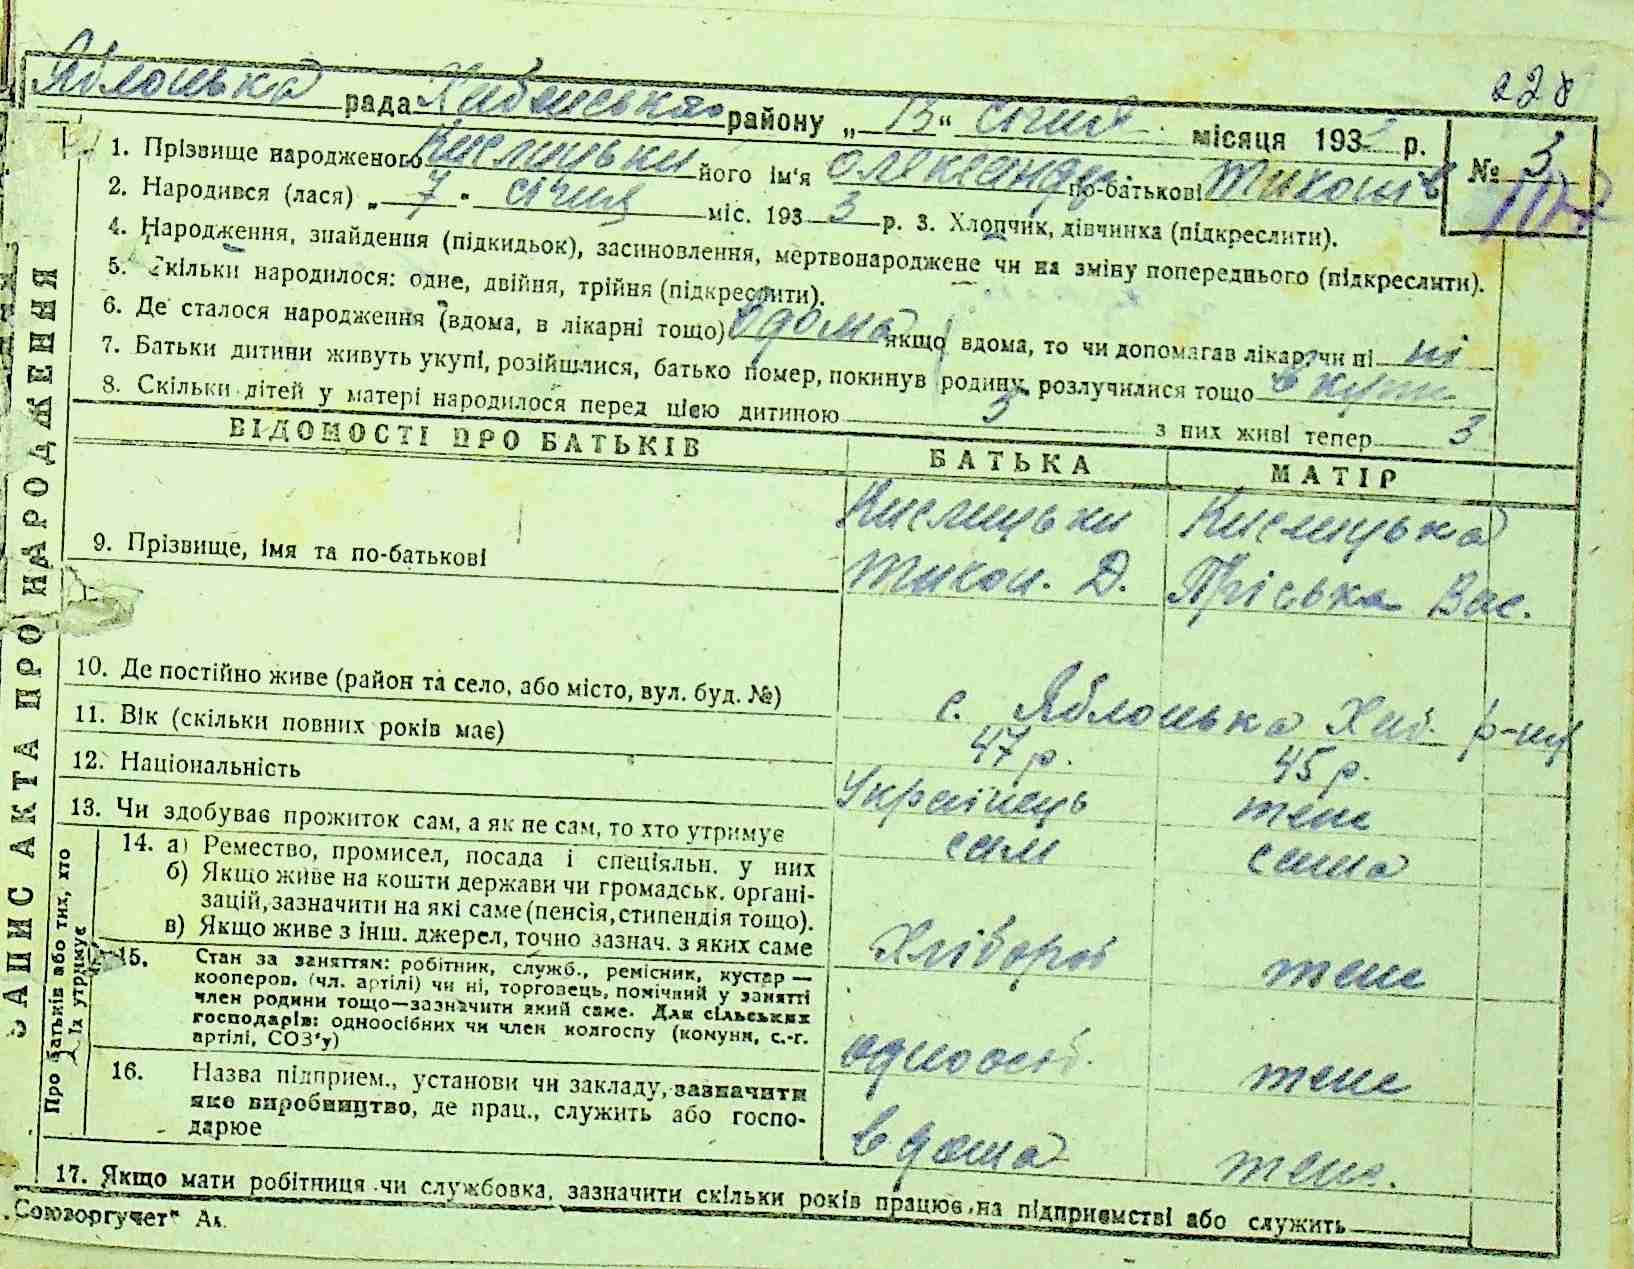 228
Яблонька рада Хабенського району „13“ січня місяця 1933 р.
№ 3
1. Прізвище народженого Кислицьки його ім'я Олександр по-батькові Тихонів
2. Народився (лася) „7“ січня міс. 1933 р. 3. Хлопчик, дівчинка (підкреслити).
4. Народження, знайдення (підкидьок), засиновлення, мертвонароджене чи на зміну попереднього (підкреслити).
5. Скільки народилося: одне, двійня, трійня (підкреслити).
6. Де сталося народження (вдома, в лікарні тощо) вдома якщо вдома, то чи допомагав лікар чи ні ні
7. Батьки дитини живуть укупі, розійшлися, батько помер, покинув родину, розлучилися тощо вкупи
8. Скільки дітей у матері народилося перед цією дитиною 3 з них живі тепер 3
ВІДОМОСТІ ПРО БАТЬКІВ БАТЬКА МАТІР
Кислицьки Кислицька
9. Прізвище, імя та по-батькові Тихон. Д. Пріська Вас.
10. Де постійно живе (район та село, або місто, вул. буд. №) с. Яблонька Хаб. р-ну
11. Вік (скільки повних років має) 47 р. 45 р.
12. Національність Українець теж
13. Чи здобуває прожиток сам, а як не сам, то хто утримує сам сама
14. а) Ремество, промисел, посада і спеціяльн. у них
б) Якщо живе на кошти держави чи громадськ. органі-
зацій, зазначити на які саме (пенсія, стипендія тощо).
в) Якщо живе з інш. джерел, точно зазнач. з яких саме Хлібороб теж
15. Стан за заняттям: робітник, служб., ремісник, кустар —
кооперов. (чл. артілі) чи ні, торговець, помічний у занятті
член родини тощо—зазначити який саме. Для сільських
господарів: одноосібних чи член колгоспу (комуни, с.-г.
артілі, СОЗ'у) одноосіб. теж
16. Назва підприєм., установи чи закладу, зазначити
яке виробництво, де прац., служить або госпо-
дарює вдома теж.
17. Якщо мати робітниця чи службовка, зазначити скільки років працює на підприємстві або служить
„Союзоргучет“
ЗАПИС АКТА ПРО НАРОДЖЕННЯ
Про батьків або тих, хто
їх утримує